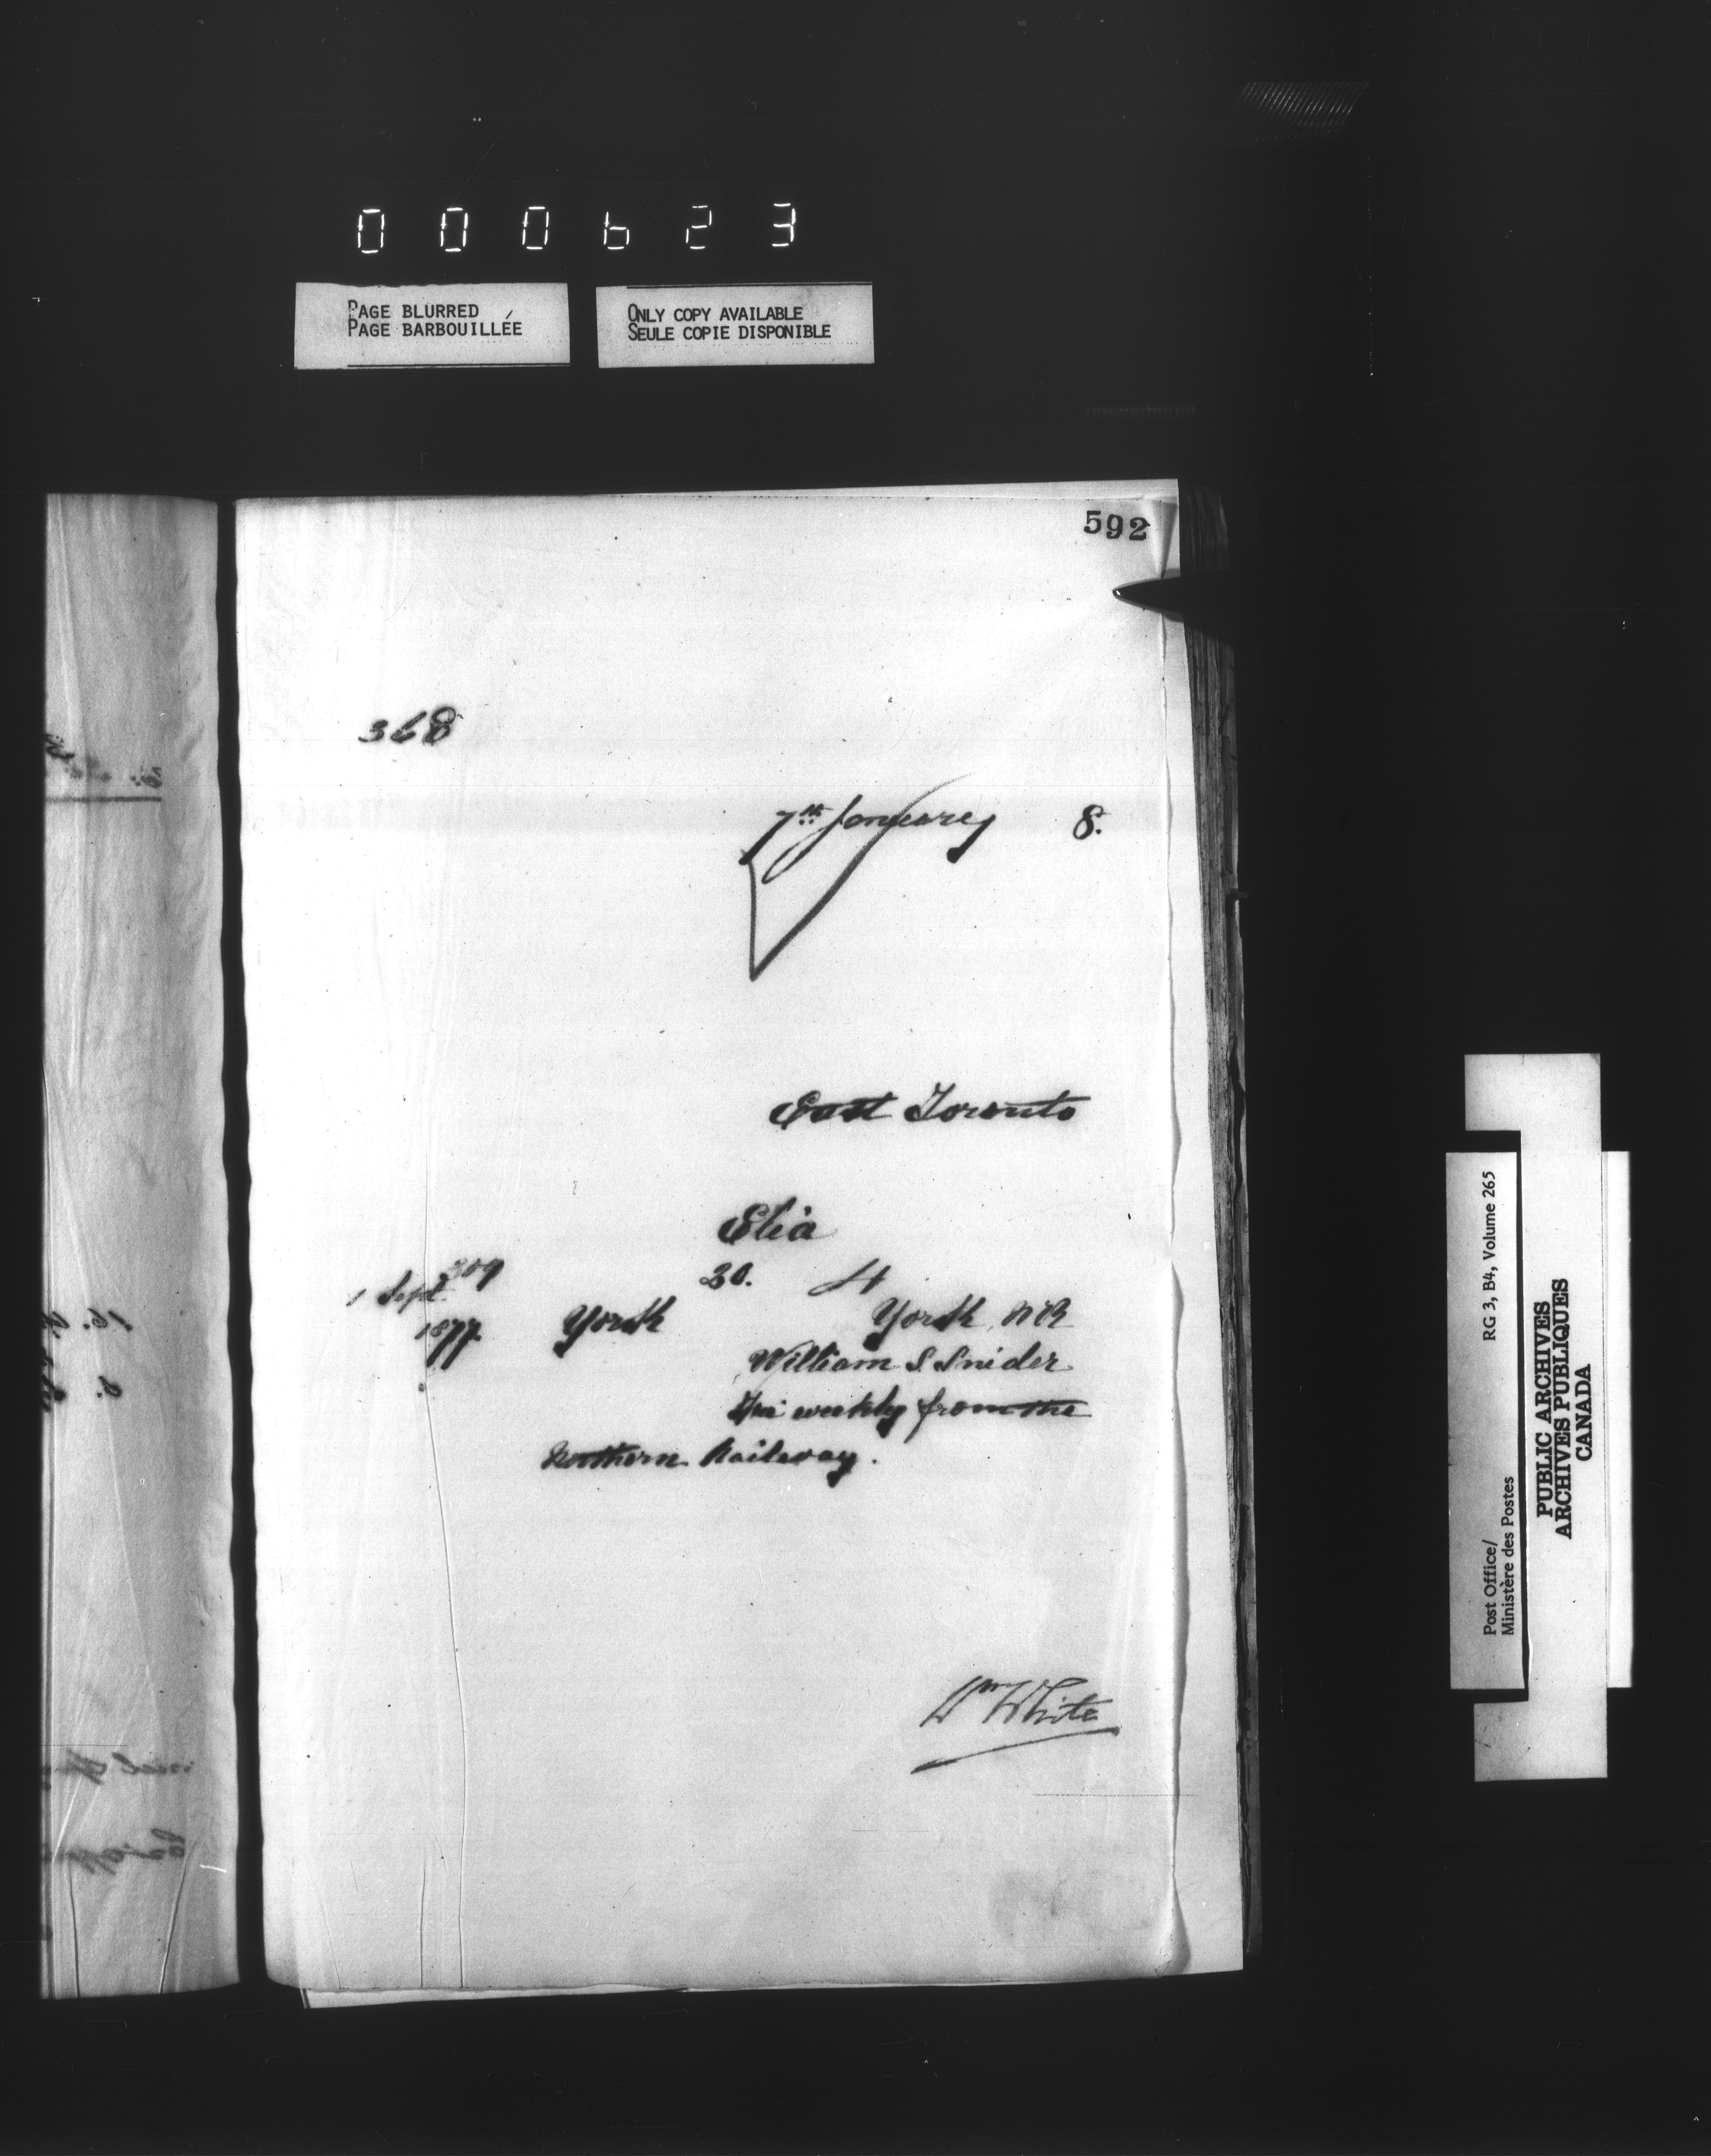 000623
PAGE BLURRED
PAGE BARBOUILLÉE
ONLY COPY AVAILABLE
SEULE COPIE DISPONIBLE
592
368
7th January 8.
East Toronto
Elia
209 20. 4
1 Sept.
1877 York York, N R
William S. Snider
Tri weekly from the
Northern Railway.
Wm White
Post Office/
Ministère des Postes
RG 3, B4, Volume 265
PUBLIC ARCHIVES
ARCHIVES PUBLIQUES
CANADA